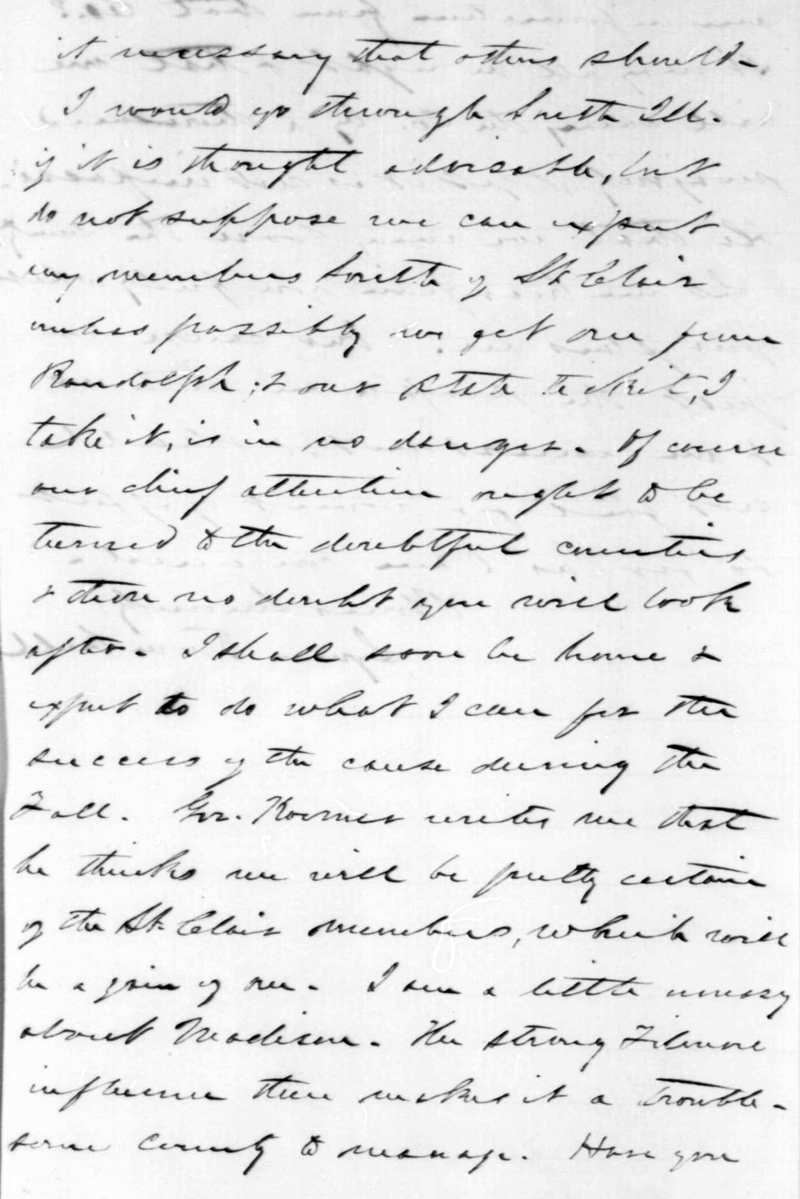 it necessary that others should-
I would go through South Ill.
if it is thought advisable, but
do not suppose we can expect
any members South of St Clair
unless possibly we get one from
Randolph; & our State ticket, I
take it, is in no danger. Of course
our chief attention ought to be
turned to the doubtful counties
& these no doubt you will look
after. I shall soon be home &
expect to do what I can for the
success of the cause during the
Fall. Gov. Koerner writes me that
he thinks we will be pretty certain
of the St Clair members, which will
be a gain of one. I am a little uneasy
about Madison. The strong Filmore
influence there makes it a trouble-
some county to manage. Have you